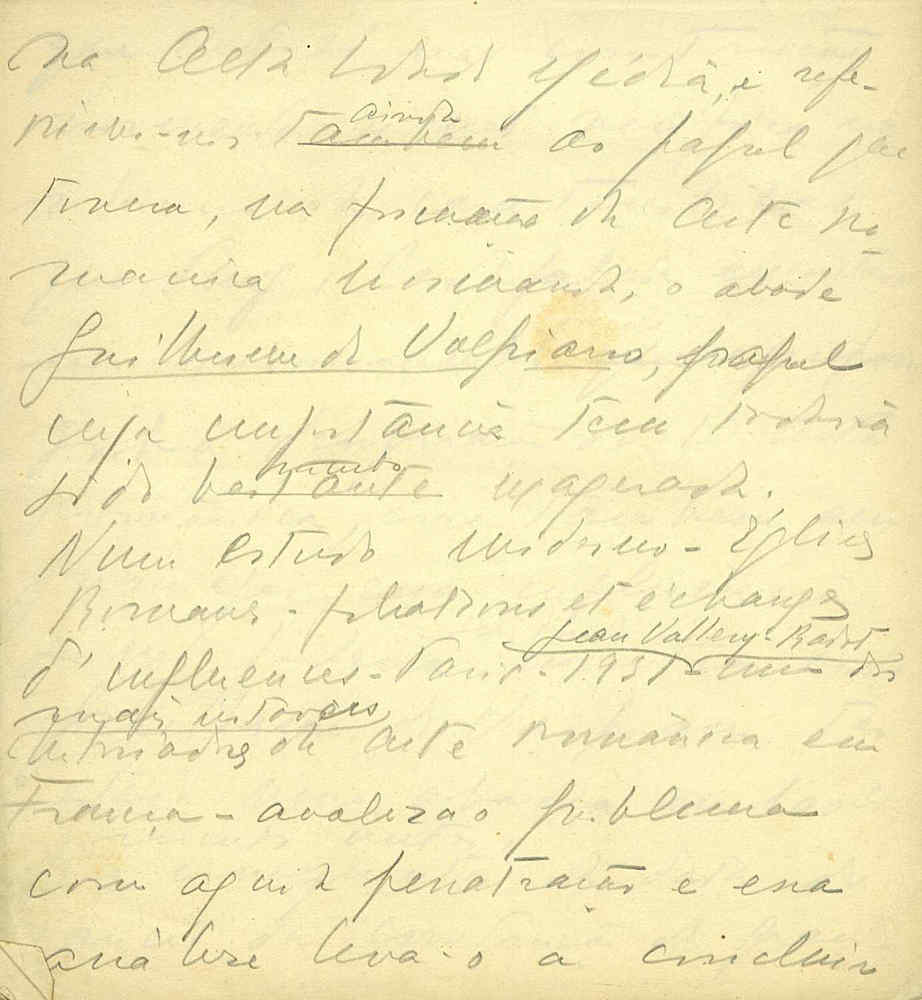 na Alta Idade Média, e refe-
rimo-nos também ainda ao papel que
tivera, na formação da arte ro-
manica normanda, o abade
Guilherme de Volpiano, papel
cuja importância tem todavia
sido bastante muito exagerada.
Num estudo moderno - Églises
Romanes - filiations et échanges
d'influences - Paris - 1937 - Jean Vallery-Radot um dos
mais notáveis
historiadores da arte românica em
França - analiza o problema
com aguda penetração e essa
análise leva-o a concluir